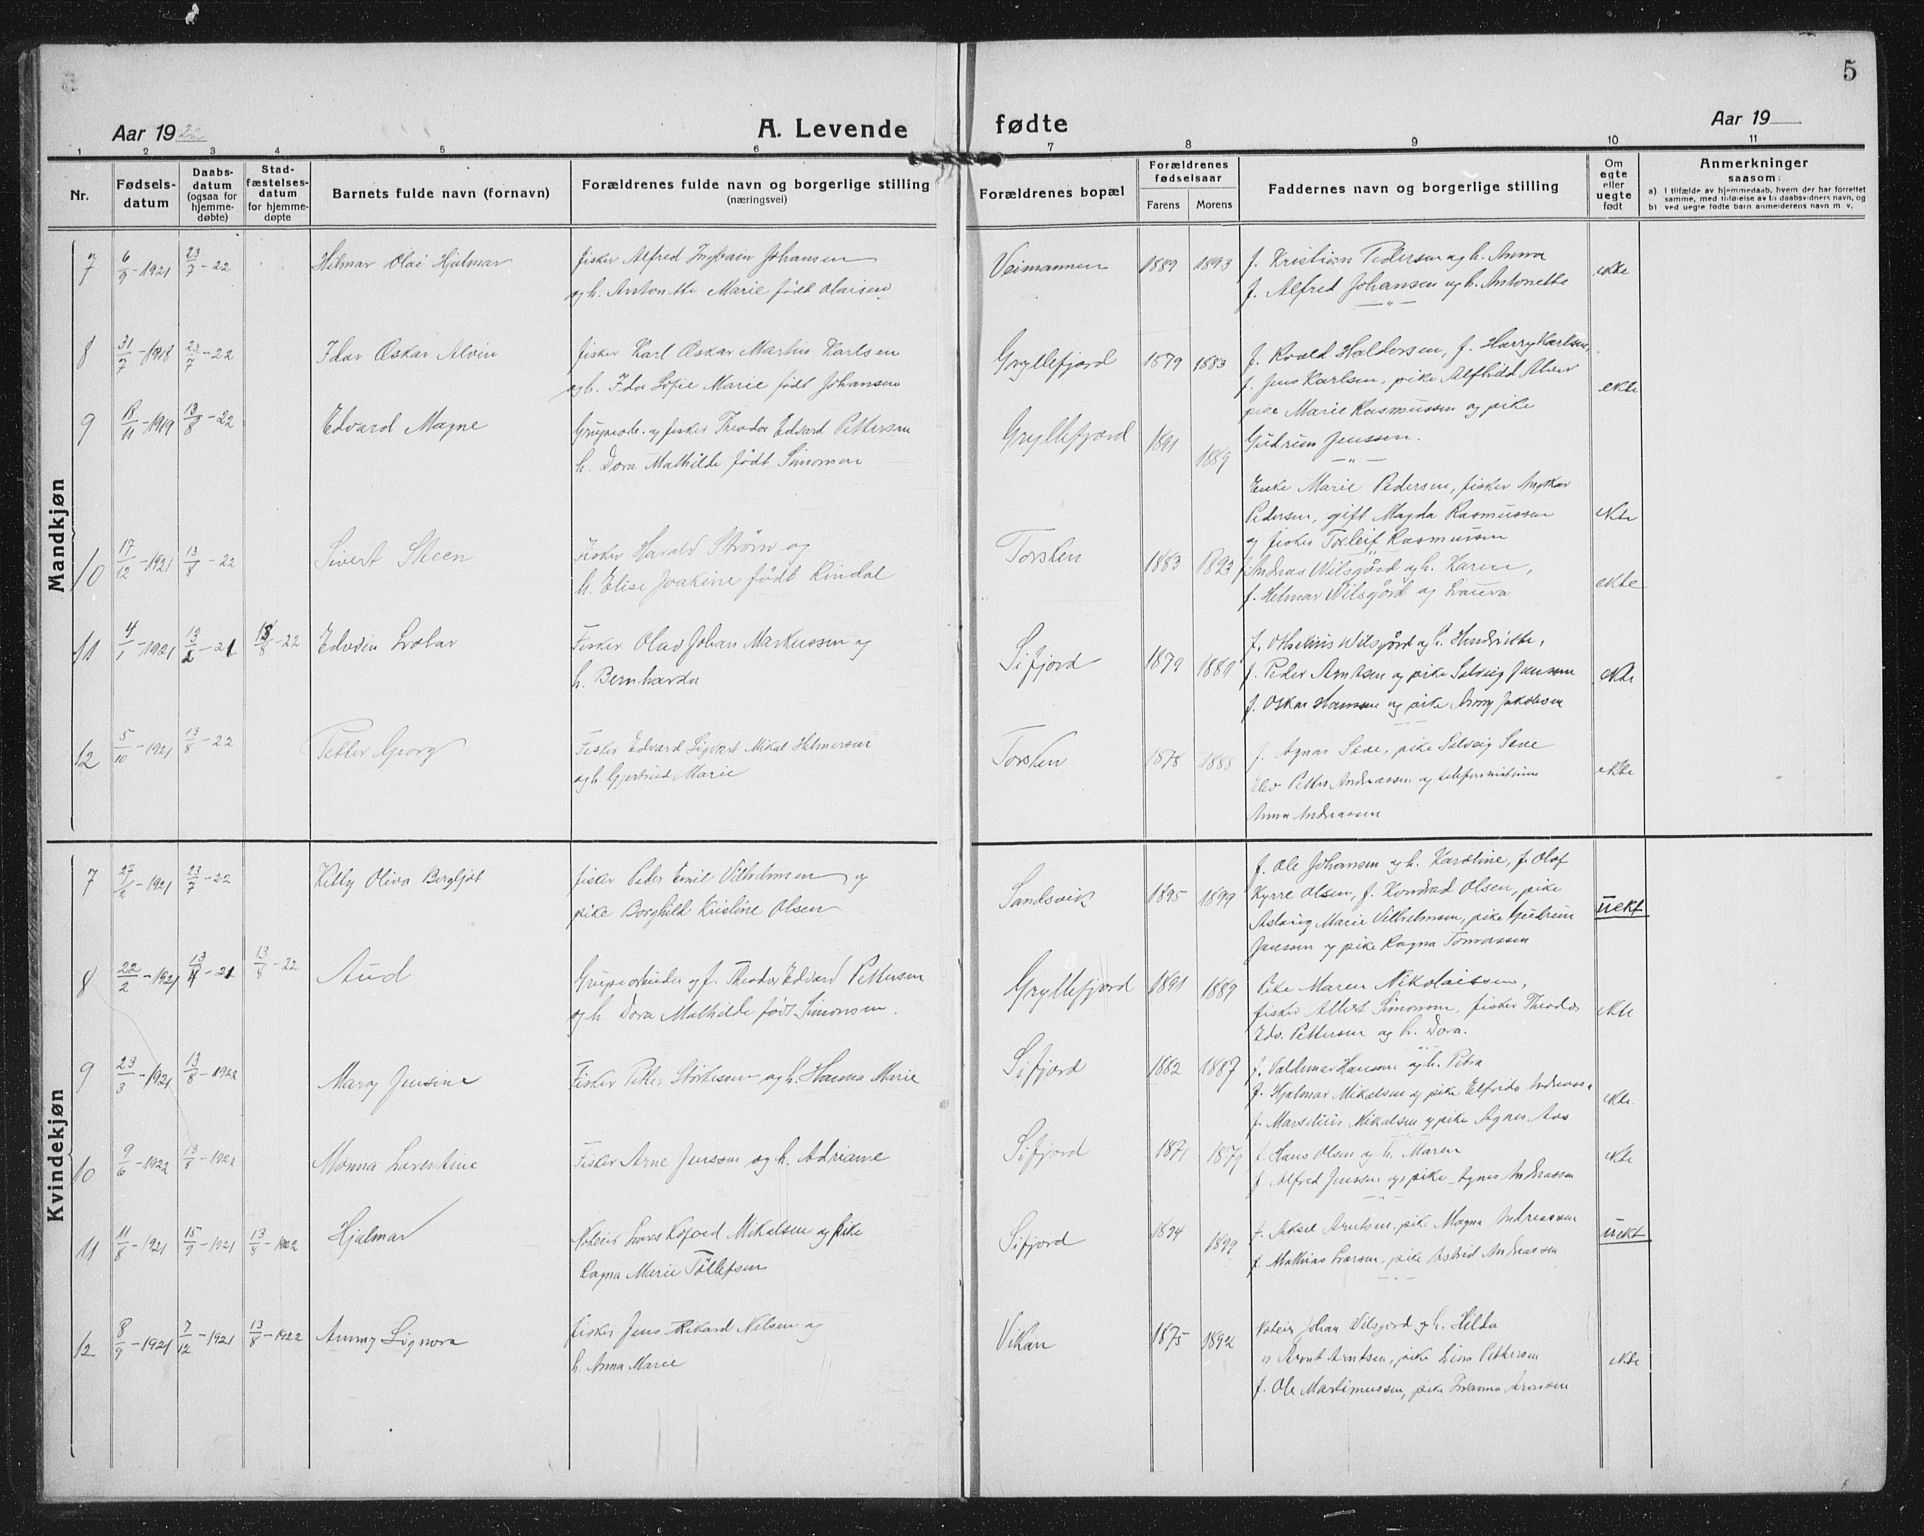 5
Aar 1922 A. Levende
fødte Aar 19
1 2 3 4 5 6 7 8 9 10 11
Nr. Fødselsdatum Daabsdatum (ogsaa for hjemmedøbte) Stadfæstelsesdatum for hjemmedøpte Barnets fulde navn (fornavn) Forældrenes fulde navn og borgerlige stilling (næringsvei)
Forældrenes bopæl Forældrenes fødselsaar Farens Morens Faddernes navn og borgerlige stilling Om egte eller uegte født Anmerkninger saasom:
a) I tilfælde av hjemmedaab, hvem der har forrettet samme, med tilføielse av to daabsvidners navn, og
b) ved uegte fødte barn anmelderens navn m. v.
Mandkjøn
7 6/9-1921 23/7-22 Hilmar Olai Hjalmar fisker Alfred Ingbain Johansen Veimannen 1889 1893 f. Kristian Pedersen og h. Anna ekte
og h. Antonette Marie født Olaisen f. Alfred Johansen og h. Antonette
8 31/7-1918 23/7-22 Idar Oskar Alvin fisker Karl Oskar Martin Karlsen Gryllefjord 1879 1883 f. Roald Haldorsen, f. Harry Karlsen,
og h. Ida Sofie Marie født Johansen f. Jens Karlsen, pike Alfhild ekte
pike Marie Rasmussen og pike
9 18/11-1919 13/8-22 Edvard Magne og fisker Theodor Edvard Pettersen Gryllefjord 1891 1889 Gudrun Jenssen.
h. Dora Mathilde født Simonsen
Enke Marie Pedersen, fisker
Pedersen, gift Magda Rasmussen ekte
og fisker Torleif Rasmussen
10 17/12-1921 13/8-22 Sivert Steen Fisker Harald Strøm og Torsken 1883 1893 f. Andreas Wilsgård og h. Karen,
h. Elise Joakine født Kindal f. Hilmar Wilsgård og Laura ekte
11 4/1-1921 13/2-21 13/8-22 Edvin Fisker Olav Johan Markussen og Sifjord 1879 1880 f. Wilsgård og h. Hendrikke,
h. Bernharda f. Peder Arntsen og pike Solveig Jenssen ekte
f. Oskar Hansen og pike Jakobsen
12 5/10-1921 13/8-22 Petter Georg Fisker Edvard Sigvart Mikal Hilmersen Torsken 1878 1888 f. Agnar Seve, pike Solveig Seve
og h. Gjertrud Marie Elev Petter Andreassen og telefonistinne ekte
Anna Andreassen
Kvindekjøn
7 27/2-1921 23/7-22 Kitty Oliva Bergljot fisker Peter Emil Vilhelmsen og Sandsvik 1895 1899 f. Ole Johansen og h. Karoline, f. Olaf
pike Borghild Kristine Olsen Kyrre Olsen, f. Konrad Olsen, pike uekt
Aslaug Marie Vilhelmsen, pike Gudrun
Jenssen og pike Ragna Tomassen
8 22/2-1921 13/4-21 13/8-22 Aud Grupearbeider og f. Theodor Edvard Pettersen Gryllefjord 1891 1889 Pike Maren Nikolaissen,
og h. Dora Mathilde født Simonsen. fisker Albert Simonsen, fisker Theodor ekte
Edv. Pettersen og h. Dora.
9 23/3-1921 13/8-1922 Mary Jensine Fisker Petter Størkesen og h. Hanna Marie Sifjord 1882 1887 f. Valdemar Hansen og h. Petra
f. Hjalmar Mikalsen og pike Elfrida Andreass. ekte
f. Marselius Mikalsen og pike Agnes Aas
10 9/6-1922 13/8-1922 Monna Lorentine Fisker Arne Jenssen og h. Adriane Sifjord 1871 1879 f. Hans Olsen og h. Maren ekte
f. Alfred Jenssen og pike Agnes Andreassen
11 11/8-1921 15/9-1921 13/8-1922 Hjalmar Mikalsen og pike Sifjord 1894 1899 f. Aksel Arntsen, pike Magna Andreassen uekt
Ragna Marie Tollefsen f. Mathias Larsen, pike Astrid Andreassen
12 8/9-1921 7/12-1921 13/8-1922 Anny Signora fisker Jens Rikard Nilsen og Vikan 1875 1892 Johan Wilsgård og h. Hilda
h. Anna Marie Arnt Arntsen, pike Lina Pettersen ekte
f. Ole Martinussen, pike Aronsen